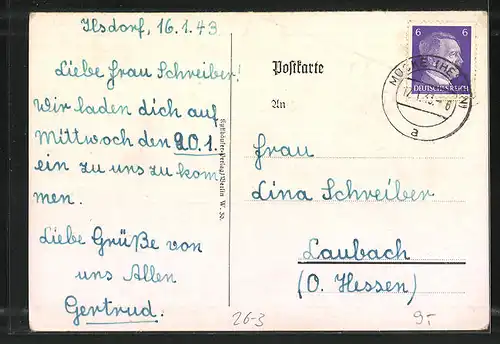 Ilsdorf, 16.1.43
Liebe Frau Schreiber!
Wir laden dich auf
Mittwoch den 20.1.
ein zu uns zu kom
men.
Liebe Grüße von
uns Allen
Gertrud.
Kyffhäuser-Verlag, Berlin W. 30.
Postkarte
An
6 6
DEUTSCHES REICH
a
Frau
Lina Schreiber
Laubach
(O. Hessen)
26-3
9.-